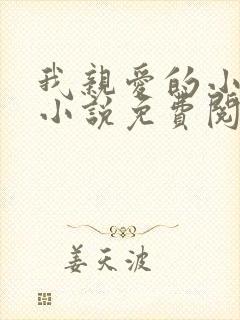 我親爱的小
小説免費閱
姜天波